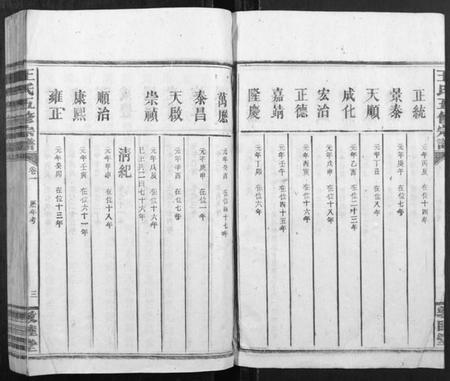 王氏五修宗譜
正統 元年丙辰 在位十四年
景泰 元年庚午 在位七年
天順 元年丁丑 在位八年
成化 元年乙酉 在位二十三年
宏治 元年戊申 在位十八年
正德 元年丙寅 在位十六年
嘉靖 元年壬午 在位四十五年
隆慶 元年丁卯 在位六年
萬曆 元年癸酉 在位四十七年
泰昌 元年庚申 在位一年
天啟 元年辛酉 在位七年
崇禎 元年戊辰 在位十六年
已上共二百七十六年
清紀
順治 元年甲申 在位十八年
康熙 元年壬寅 在位六十一年
雍正 元年癸卯 在位十三年
王氏五修宗譜
卷一
歷年考
三
敦睦堂